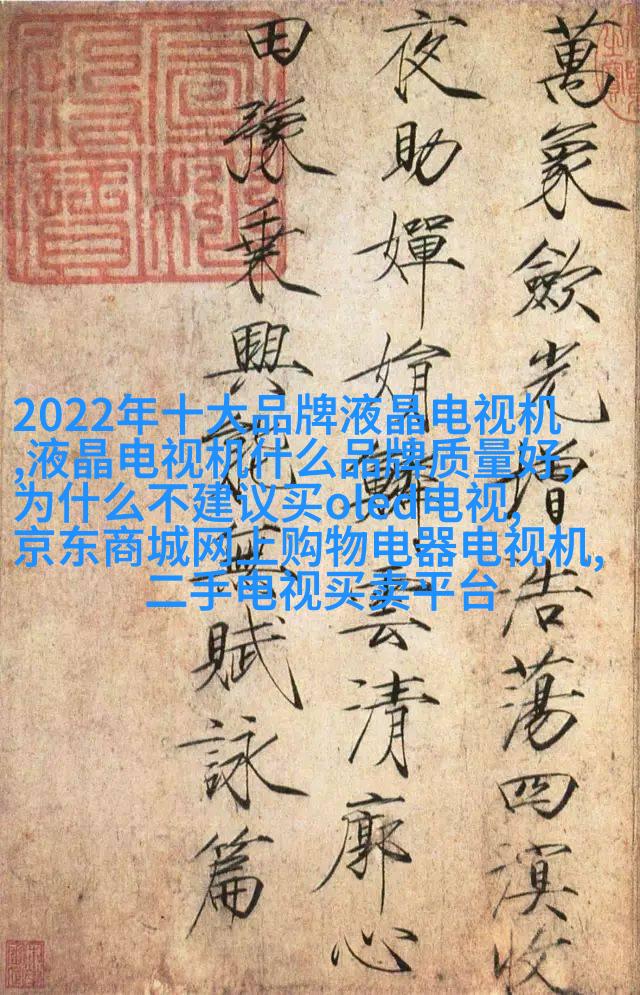 萬象歛光增浩蕩四溟收
夜助嬋娟鱗雲清廓心
田豫乗興能無賦詠篇
2022年十大品牌液晶电视机
,液晶电视机什么品牌质量好,
为什么不建议买oled电视,
京东商城网上购物电器电视机,
二手电视买卖平台